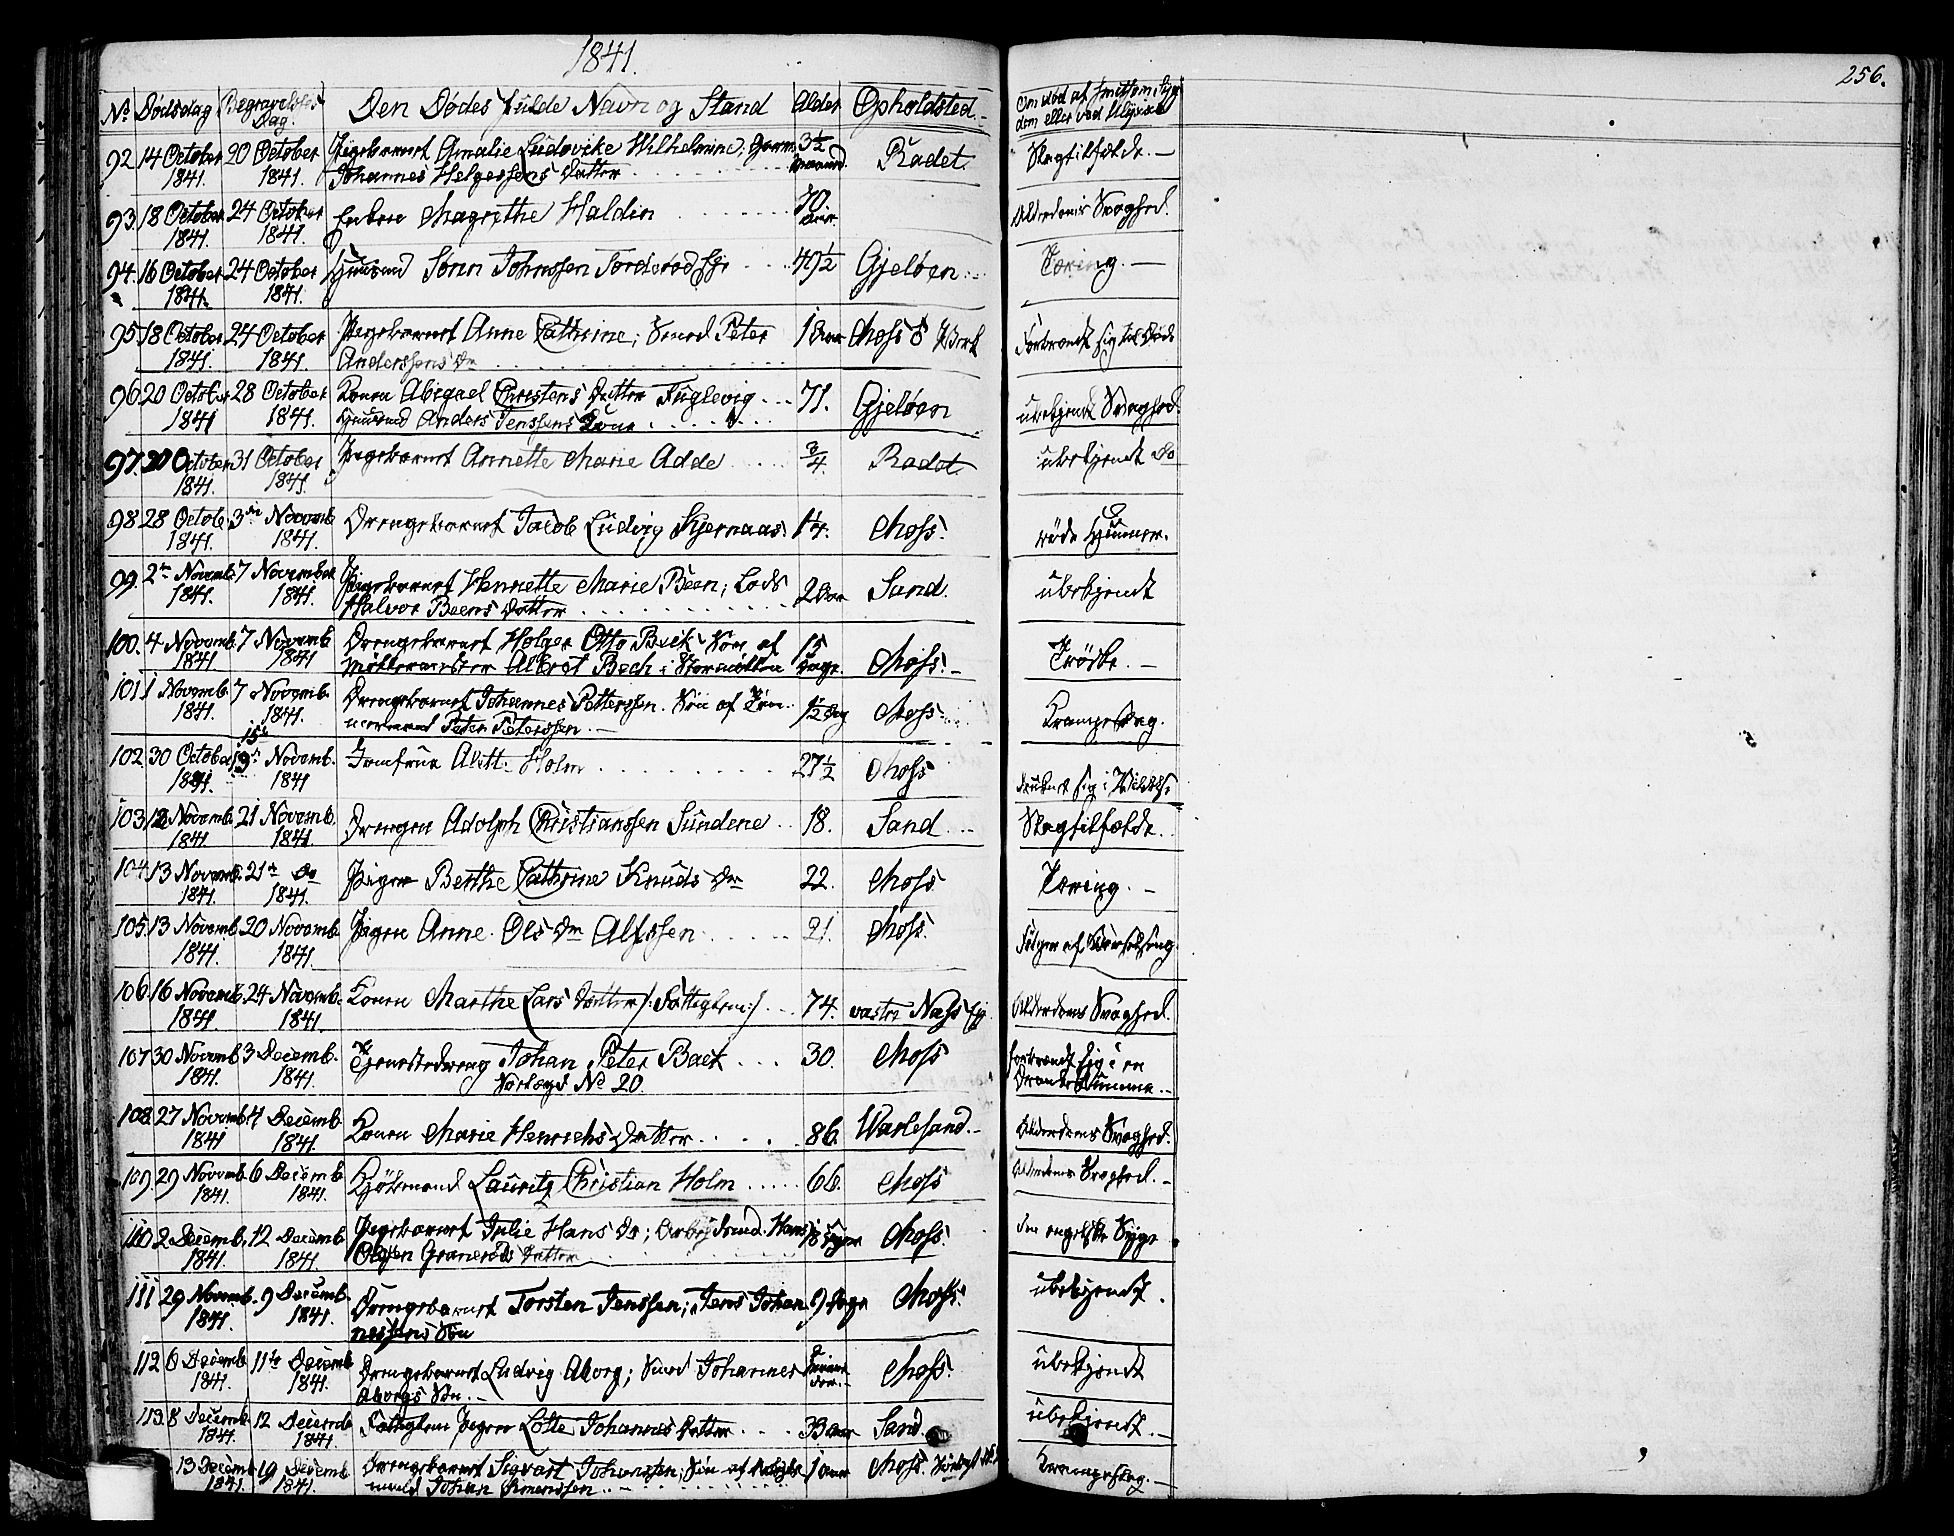 1841.
256.
No Dødsdag Begravelses Dag. Den Dødes fulde Navn og Stand Alder Opholdsted.
Om død af smitsom Syg
dom eller ved Ulykke
92 14 October 20 October Pigebarnet Amalie Ludovike Wilhelmine; 3½ Radet. Slagtilfælde.
1841. 1841. Johannes Helgesens Datter
93. 18 October 24 October Enken Magrethe Haldin 70. Alderdoms Svaghed.
1841. 1841.
94. 16 October 24 October Huusmand Sønn Johnssen 49½ Gjeløen Tæring.
1841. 1841.
95. 18 October 24 October Pigebarnet Anne Cathrine; Smed Peter 1 Aar Moss Værk Forbrændt sig til Døde
1841. 1841. Anderssens Dr
96 20 October 28 October Konen Abigael Christens Datter Fuglevig 71. Gjeløen ubekjendt Svaghed.
1841 1841. Huusmand Anders Jenssens Kone
97. 20 October 31 October Pigebarnet Annette Marie Adde ¾ Radet. ubekjendt Do
1841. 1841.
98. 28 Octobe 3die Novemb Drengebarnet Jacob Ludvig Skjernaas 1¼. Moss. røde Hunner.
1841. 1841.
99. 2den Novemb. 7 November Pigebarnet Hennette Marie Been; Lods 2 Aar Sand. ubekjendt
1841. 1841. Halvor Beens Datter
100. 4 Novemb. 7 Novemb Drengebarnet Holger Otto Beck Søn af 15 Moss. Trøske.
1841 1841 Møllermester Albret Bech i Stormøllen Dage.
101 1 Novemb. 7 Novemb. Drengebarnet Johannes Petterssen. Søn af Tøm- 1½ Dag Moss Krampeslag.
1841. 1841. mermand Peter Peterssen.
102. 30 October 15de Novemb. Jomfrue Alitt. Holm 27½ Moss druknet sig i
1841. 1841
103. 12 Novemb. 21 Novemb. Drengen Adolph Christianssen Sundene 18. Sand Slagtilfælde.
1841 1841.
104. 13 Novemb. 21de Do Pigen Berthe Cathrine Knuds Dr 22. Moss. Tæring.
1841. 1841.
105. 13 Novemb. 20 Novemb. Pigen Anne Ols Dr Alfssen 21. Moss. Følgen af Barselseng.
1841. 1841.
106. 16 Novemb. 24 Novemb. Konen Marthe Lars Datter /:Fattiglem:/ 74. Alderdoms Svaghed.
1841 1841.
107 30 Novemb 3 Decemb. Tjenestedreng Johan Peter Back 30. Moss forbrændt sig i en
1841. 1841. No 20.
108. 27 Novemb. 4 Decemb. Konen Marie Henrichs Datter 86. Warlesand. Alderdoms Svaghed.
1841 1841.
109. 29 Novemb. 6 Decemb. Kjøbmand Lauritz Christian Holm 66. Moss Alderdoms Svaghed.
1841. 1841.
110 2 Decemb. 12 Decemb. Pigebarnet Julie Hans Dr; Arbeidsmd. Hans 18 Uger Moss. den engelske Syge
1841. 1841. Olssen Granerøds Datter
111 29 Novemb. 9 Decemb. Drengebarnet Torsten Jenssen; Jens Johan 9 Dage Moss. ubekjendt.
1841. 1841. nessens Søn
112 6 Decemb 11te Decemb Drengebarnet Ludvig Aborg; Smed Johannes Moss. ubekjendt
1841. 1841. Aborgs Søn.
113. 8 Decemb. 12 Decemb Fattiglem Pigen Lotte Johannes Datter 33 Aar Sand ubekjendt.
1841. 1841.
13 Decemb 19 Decemb Drengebarnet Sigvart Johanssen; Søn af 1 Aar Moss. Krampeslag.
1841. 1841. Johan Simenssen.